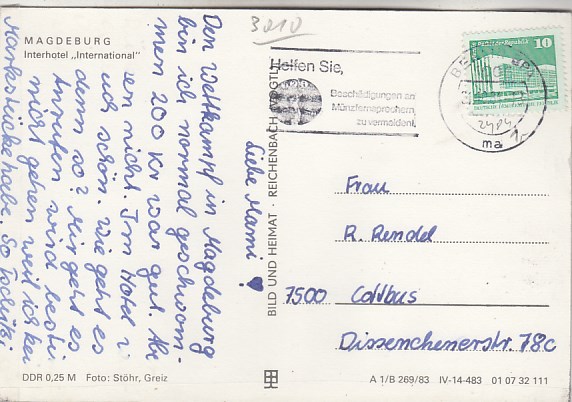 MAGDEBURG
Interhotel „International"
Liebe Mammi
Den Wettkampf in Magdeburg
bin ich normal geschwom-
men 200 Kr war gut.
ren nicht. Im Hotel
ich schön. Wie geht es
denn so? Mir geht es
Anrufen wird besti
nicht gehen weil ich kei
Markstücke habe. So Tschüßi
DDR 0,25 M Foto: Stöhr, Greiz
BILD UND HEIMAT · REICHENBACH (VOGTL)
3010
Helfen Sie,
Beschädigungen an
Münzfernsprechern
zu vermeiden!
10
Frau
R. Rendel
7500 Cottbus
Dissenchenerstr. 78c
A 1/B 269/83 IV-14-483 01 07 32 111